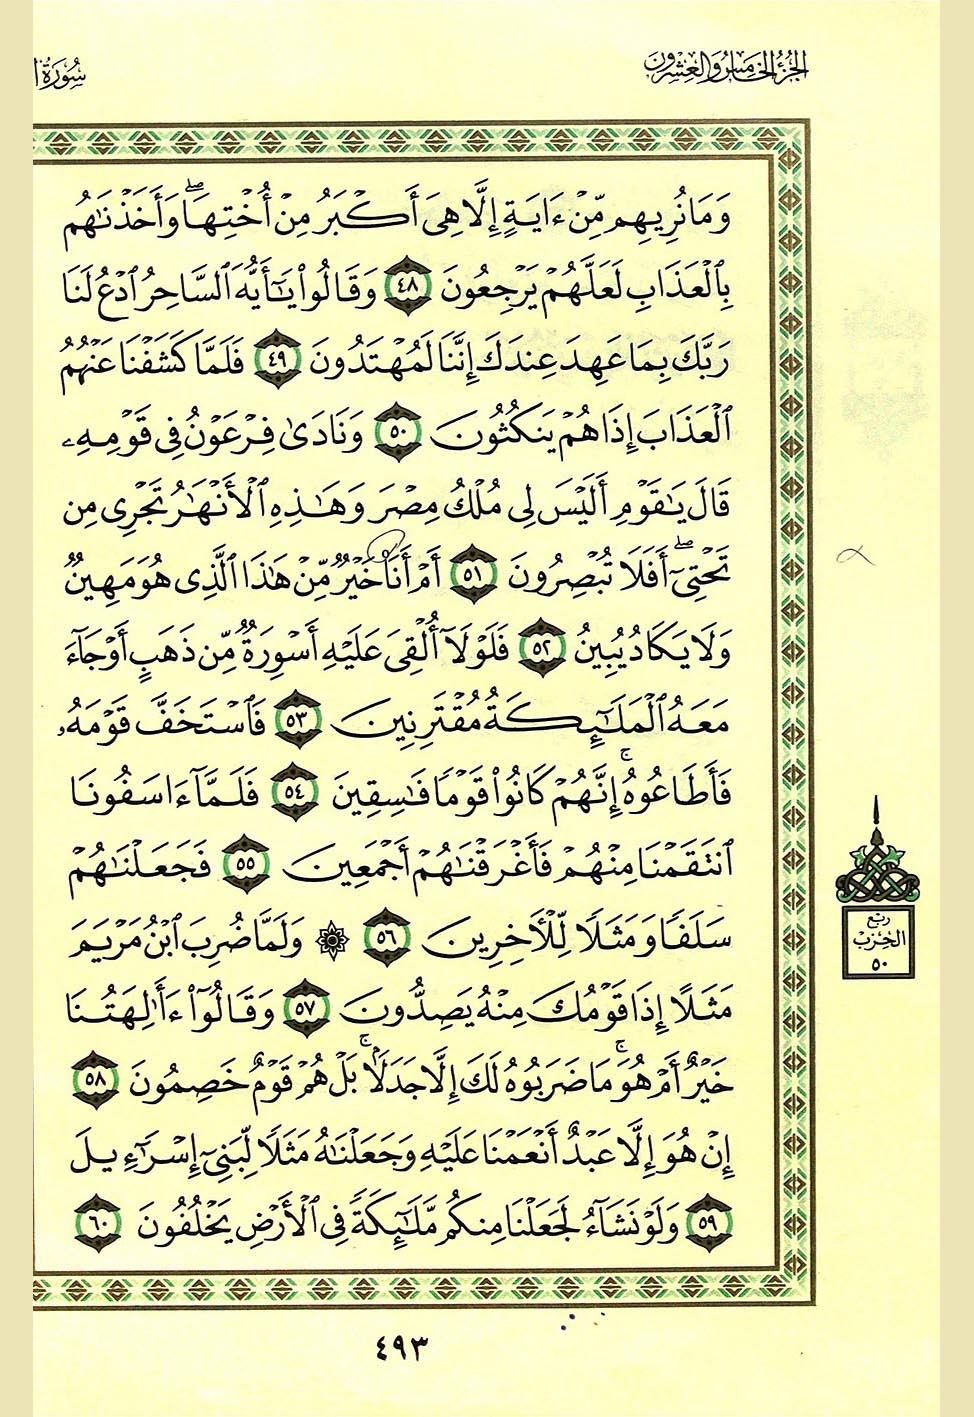 الجزء الخامس والعشرون
سُورَةُ
وَمَا نُرِيهِم مِّنْ ءَايَةٍ إِلَّا هِىَ أَكْبَرُ مِنْ أُخْتِهَا ۖ وَأَخَذْنَٰهُم
بِٱلْعَذَابِ لَعَلَّهُمْ يَرْجِعُونَ ٤٨ وَقَالُوا۟ يَٰٓأَيُّهَ ٱلسَّاحِرُ ٱدْعُ لَنَا
رَبَّكَ بِمَا عَهِدَ عِندَكَ إِنَّنَا لَمُهْتَدُونَ ٤٩ فَلَمَّا كَشَفْنَا عَنْهُمُ
ٱلْعَذَابَ إِذَا هُمْ يَنكُثُونَ ٥٠ وَنَادَىٰ فِرْعَوْنُ فِى قَوْمِهِۦ
قَالَ يَٰقَوْمِ أَلَيْسَ لِى مُلْكُ مِصْرَ وَهَٰذِهِ ٱلْأَنْهَٰرُ تَجْرِى مِن
تَحْتِىٓ ۖ أَفَلَا تُبْصِرُونَ ٥١ أَمْ أَنَا۠ خَيْرٌ مِّنْ هَٰذَا ٱلَّذِى هُوَ مَهِينٌ
وَلَا يَكَادُ يُبِينُ ٥٢ فَلَوْلَآ أُلْقِىَ عَلَيْهِ أَسْوِرَةٌ مِّن ذَهَبٍ أَوْ جَآءَ
مَعَهُ ٱلْمَلَٰٓئِكَةُ مُقْتَرِنِينَ ٥٣ فَٱسْتَخَفَّ قَوْمَهُۥ
فَأَطَاعُوهُ ۚ إِنَّهُمْ كَانُوا۟ قَوْمًا فَٰسِقِينَ ٥٤ فَلَمَّآ ءَاسَفُونَا
ٱنتَقَمْنَا مِنْهُمْ فَأَغْرَقْنَٰهُمْ أَجْمَعِينَ ٥٥ فَجَعَلْنَٰهُمْ
سَلَفًا وَمَثَلًا لِّلْءَاخِرِينَ ٥٦ ۞ وَلَمَّا ضُرِبَ ٱبْنُ مَرْيَمَ
مَثَلًا إِذَا قَوْمُكَ مِنْهُ يَصِدُّونَ ٥٧ وَقَالُوٓا۟ ءَأَٰلِهَتُنَا
خَيْرٌ أَمْ هُوَ ۚ مَا ضَرَبُوهُ لَكَ إِلَّا جَدَلًۢا ۚ بَلْ هُمْ قَوْمٌ خَصِمُونَ ٥٨
إِنْ هُوَ إِلَّا عَبْدٌ أَنْعَمْنَا عَلَيْهِ وَجَعَلْنَٰهُ مَثَلًا لِّبَنِىٓ إِسْرَٰٓءِيلَ
٥٩ وَلَوْ نَشَآءُ لَجَعَلْنَا مِنكُم مَّلَٰٓئِكَةً فِى ٱلْأَرْضِ يَخْلُفُونَ ٦٠
ربع
الحزب
٥٠
٤٩٣